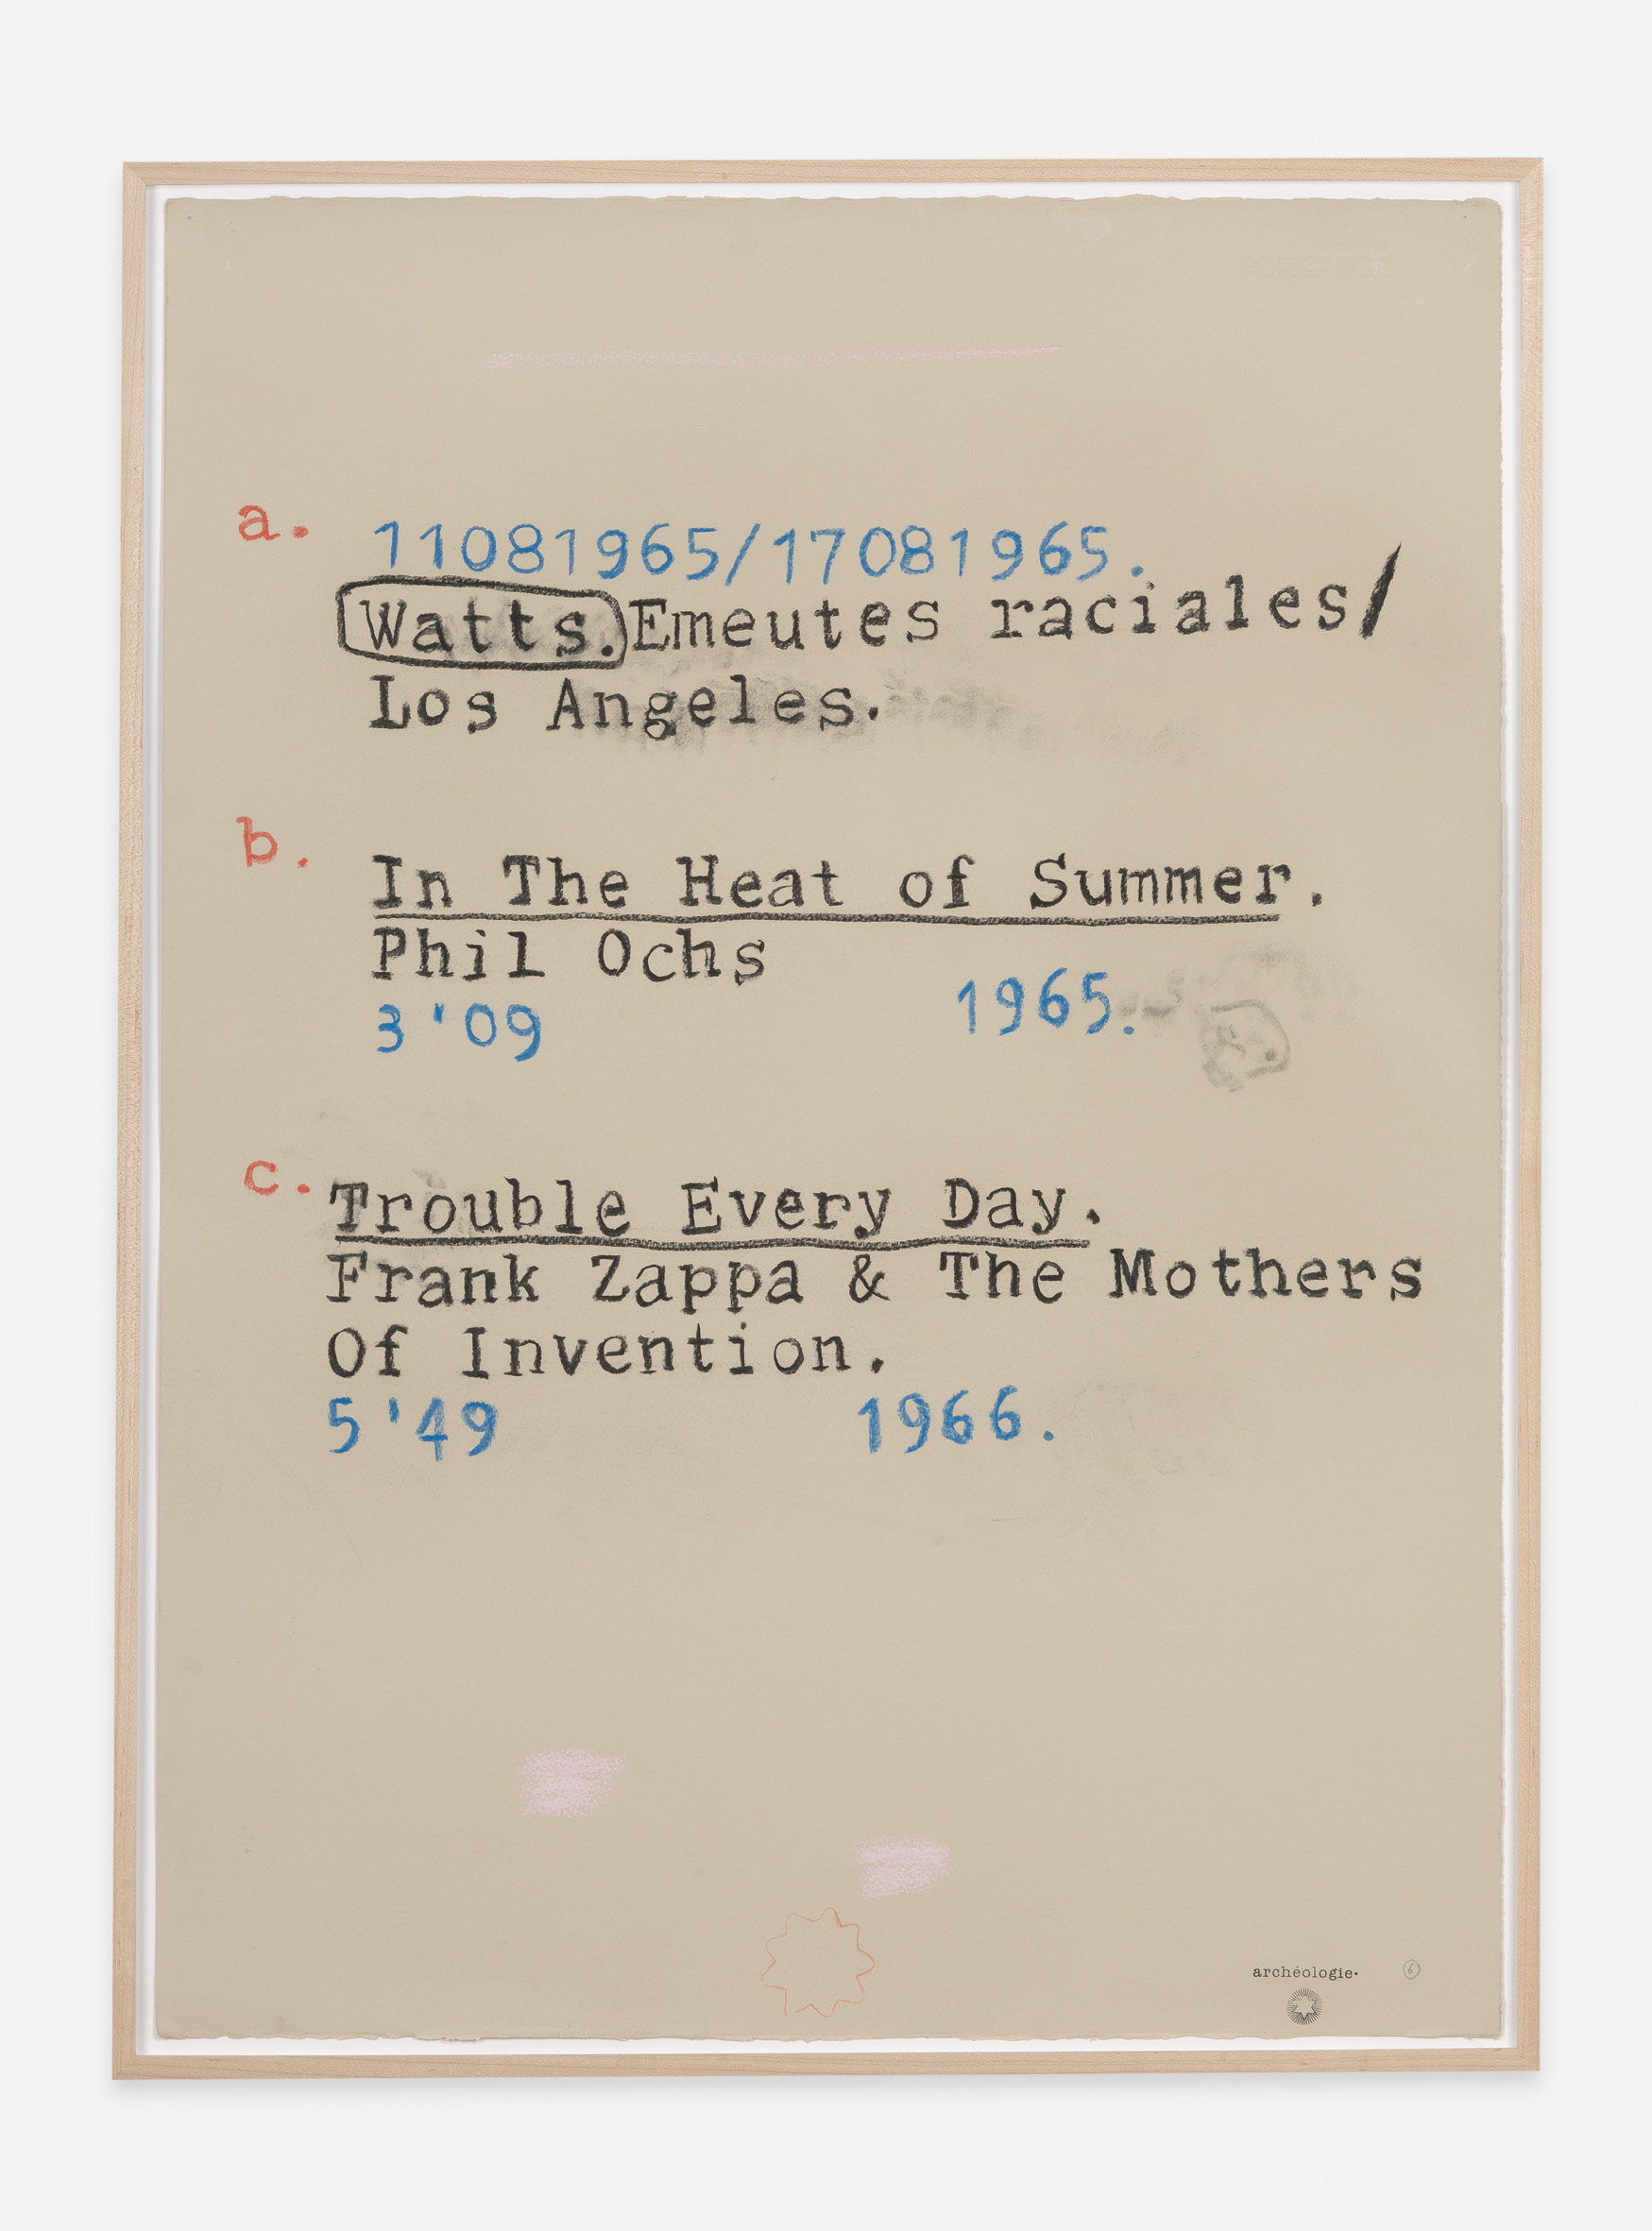 a.
11081965/17081965.
Watts.Emeutes raciales/
Los Angeles.
b.
In The Heat of Summer.
Phil Ochs
3'09 1965.
c.
Trouble Every Day.
Frank Zappa & The Mothers
Of Invention.
5'49 1966.
archéologie. 6